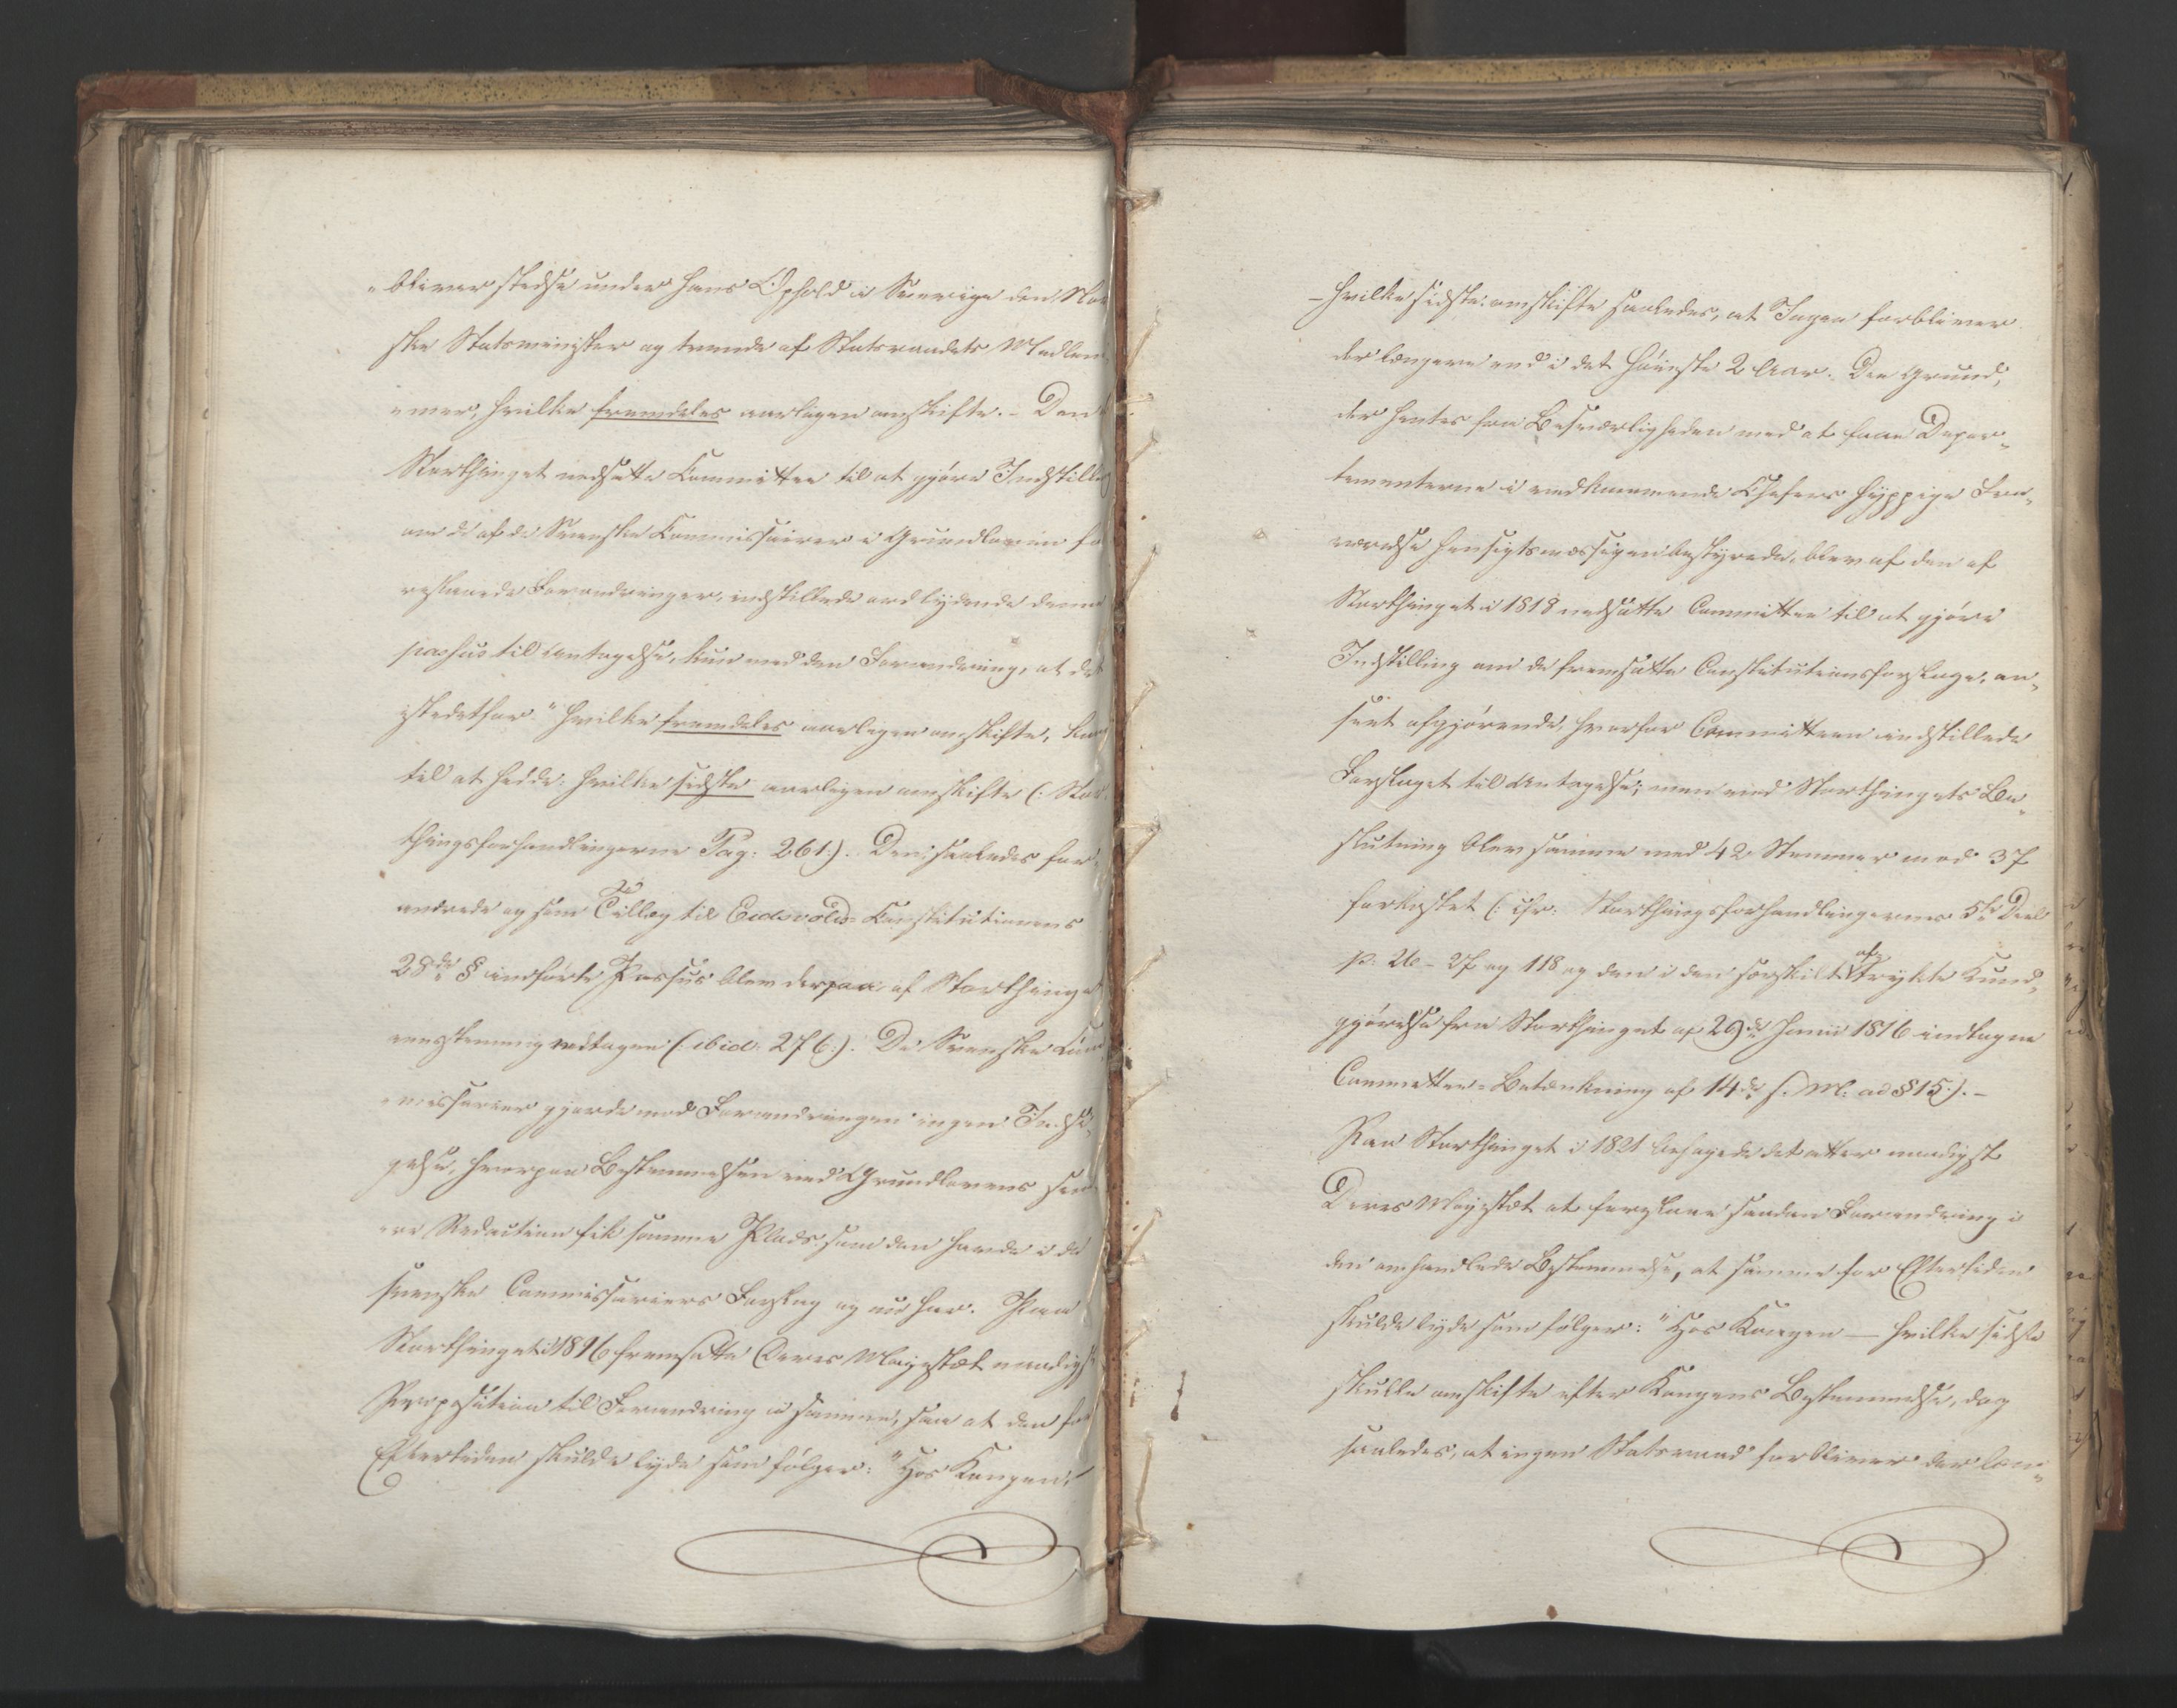 „bliver stedse under hans Ophold i Sverige den Nor
ske Statsminister og tvende af Statsraadets Medlem
mer, hvilke fremdeles aarligen omskifte. – Den
Storthinget nedsatte Committee til at gjöre Indstilling
om de af de Svenske Commissairer i Grundloven fo
reslaaede Forandringer, indstillede ordlydende denne
passus til Antagelse, kun med den Forandring, at det
istedetfor: "hvilke fremdeles aarligen omskifte, kom
til at hedde: hvilke sidste aarligen omskifte (: Stor-
thingsforhandlingerne Pag: 261:). Den saaledes for-
andrede og som Tillæg til Eidsvolds Constitutionens
28de § indförte Passus blev derpaa af Storthinget
eenstemmig vedtagen (: ibid: 276:). De Svenske Com
missarier gjorde mod Forandringen ingen Indsi-
gelse, hvorpaa Bestemmelsen ved Grundlovens sen-
ere Redaction fik samme Plads som den havde i de
svenske Commissariers Forslag og nu har. Paa
Storthinget i 1816 fremsatte Deres Majestæt naadigst
Proposition til Forandring i samme, saa at den for
Eftertiden skulde lyde som fölger: "Hos Kongen
– hvilke sidste omskifte saaledes, at Ingen forbliver
der længere end i det höieste 2 Aar. Den Grund,
der hentes fra Besværligheden med at faae Depar-
tementerne i vedkommende Chefers hyppige Fra-
værelse hensigtsmæssigen bestyrede, blev af den af
Storthinget i 1818 nedsatte Committee til at gjöre
Indstilling om de fremsatte Constitutionsforslage, an-
seet afgjörende, hvorfor Committeen indstillede
Forslaget til Antagelse; men ved Storthingets Be-
slutning blev samme med 42 Stemmer mod 37
forkastet (: cfr: Storthingsforhandlingernes 5te Deel
p: 26 – 27 og 118 og den i den særskilt aftrykte Kund-
gjörelse fra Storthinget af 29de Juni 1816 indtagne
Committee-Betænkning af 14de s. M. ad § 15:). –
Paa Storthinget i 1821 behagede det atter naadigst
Deres Majestæt at foreslaae saadan Forandring i
den omhandlede Bestemmelse, at samme for Eftertiden
skulde lyde som fölger: "Hos Kongen — hvilke sidste
skulle omskifte efter Kongens Bestemmelse, dog
saaledes, at ingen Statsraad forbliver der læn-